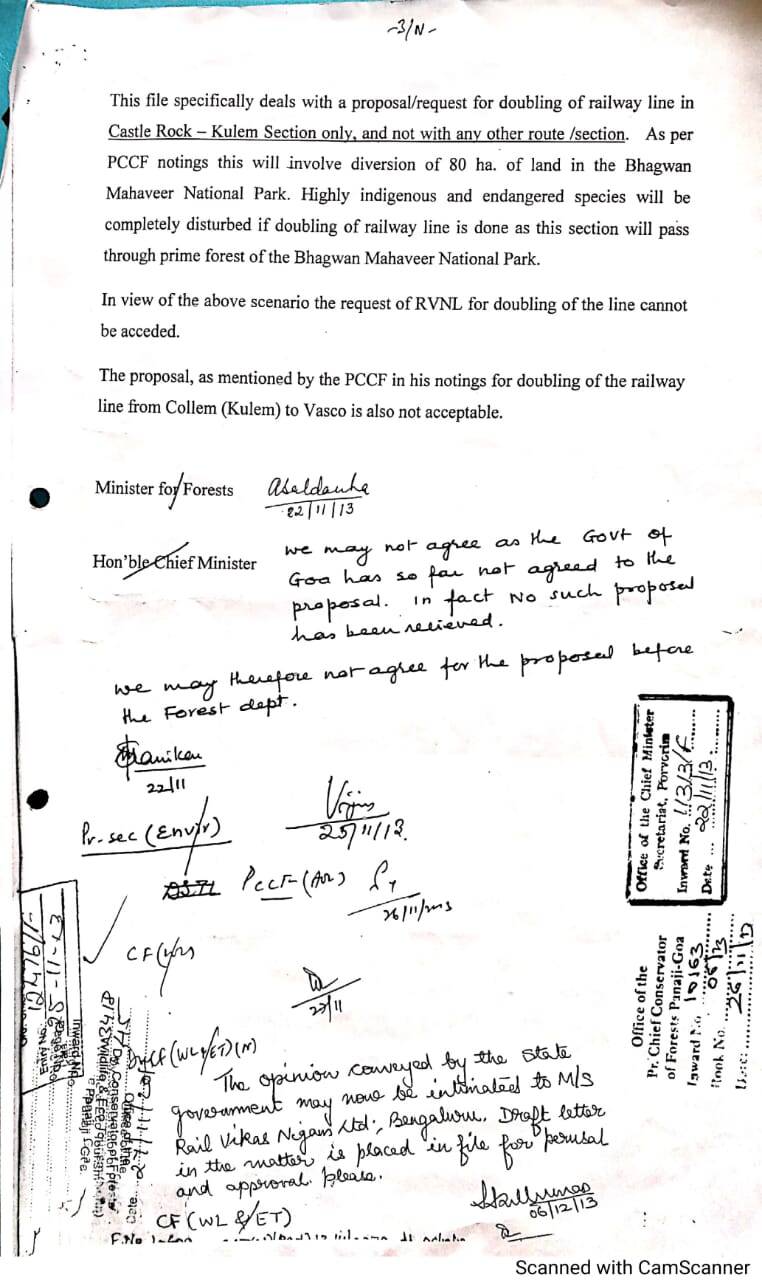 -3/N-
This file specifically deals with a proposal/request for doubling of railway line in
Castle Rock – Kulem Section only, and not with any other route /section. As per
PCCF notings this will involve diversion of 80 ha. of land in the Bhagwan
Mahaveer National Park. Highly indigenous and endangered species will be
completely disturbed if doubling of railway line is done as this section will pass
through prime forest of the Bhagwan Mahaveer National Park.
In view of the above scenario the request of RVNL for doubling of the line cannot
be acceded.
The proposal, as mentioned by the PCCF in his notings for doubling of the railway
line from Collem (Kulem) to Vasco is also not acceptable.
Minister for Forests
22/11/13
Hon'ble Chief Minister
we may not agree as the Govt of
Goa has so far not agreed to the
proposal. In fact No such proposal
has been recieved.
we may therefore not agree for the proposal before
the Forest dept.
22/11
Pr. sec (Envir)
25/11/13.
PCCF
26/11/2013
CF
27/11
The opinion conveyed by the State
government may now be intimated to M/S
Rail Vikas Nigam Ltd., Bengaluru. Draft letter
in the matter is placed in file for perusal
and approval please.
06/12/13
CF (WL & ET)
Office of the Chief Minister
Secretariat, Porvorim
Inward No.
Date ... 22/11/13
Office of the
Pr. Chief Conservator
of Forests Panaji-Goa
Inward No. 10163
Book No. 05/13
Date: 26/11/13
Inward No.
Office of the
Dy. Conservator of Forests
Wildlife & Eco-Tourism
Panaji Goa
Date
Scanned with CamScanner